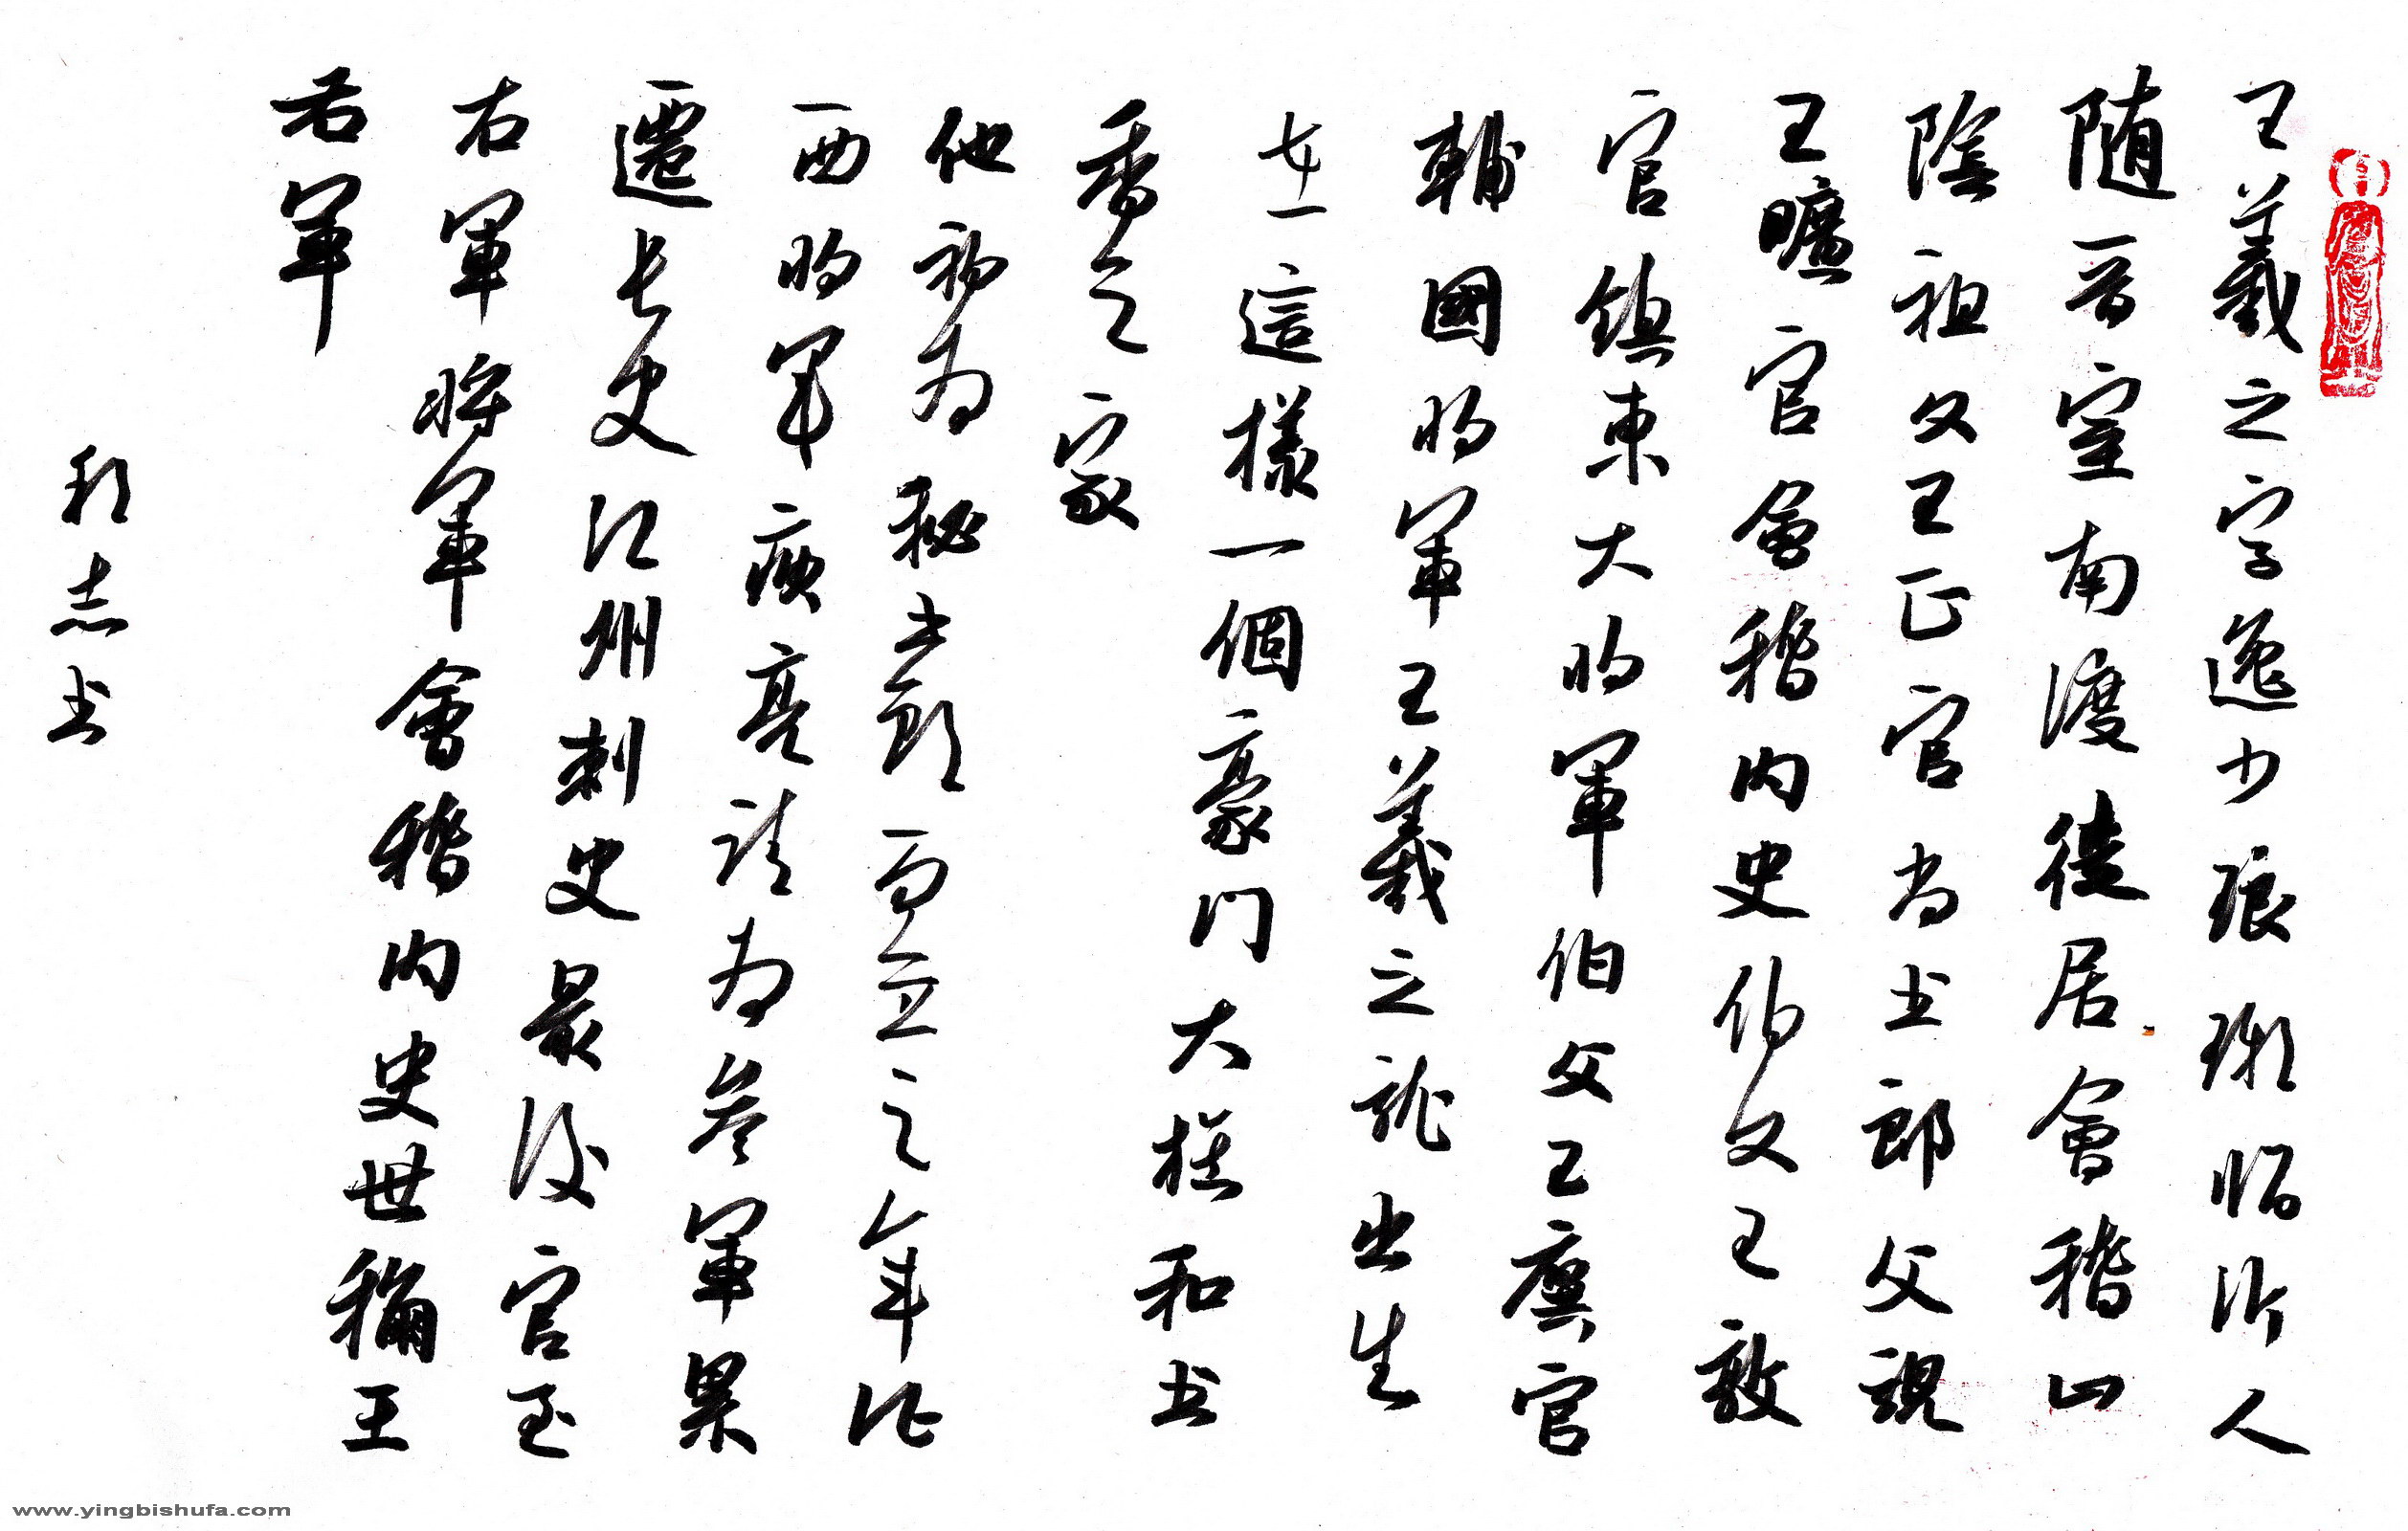 王羲之字逸少琅琊临沂人
随晋室南渡徒居會稽山
陰祖父王正官尚书郎父親
王曠官會稽内史伯父王敦
官鎮東大將军伯父王廙官
輔國將军王羲之就出生
在這樣一個豪門大族和书
香之家
他初为秘书郎而立之年征
西將军庾亮請为參军累
遷长史江州刺史最後官至
右军將军會稽内史世稱王
右军
志书
www.yingbishufa.com